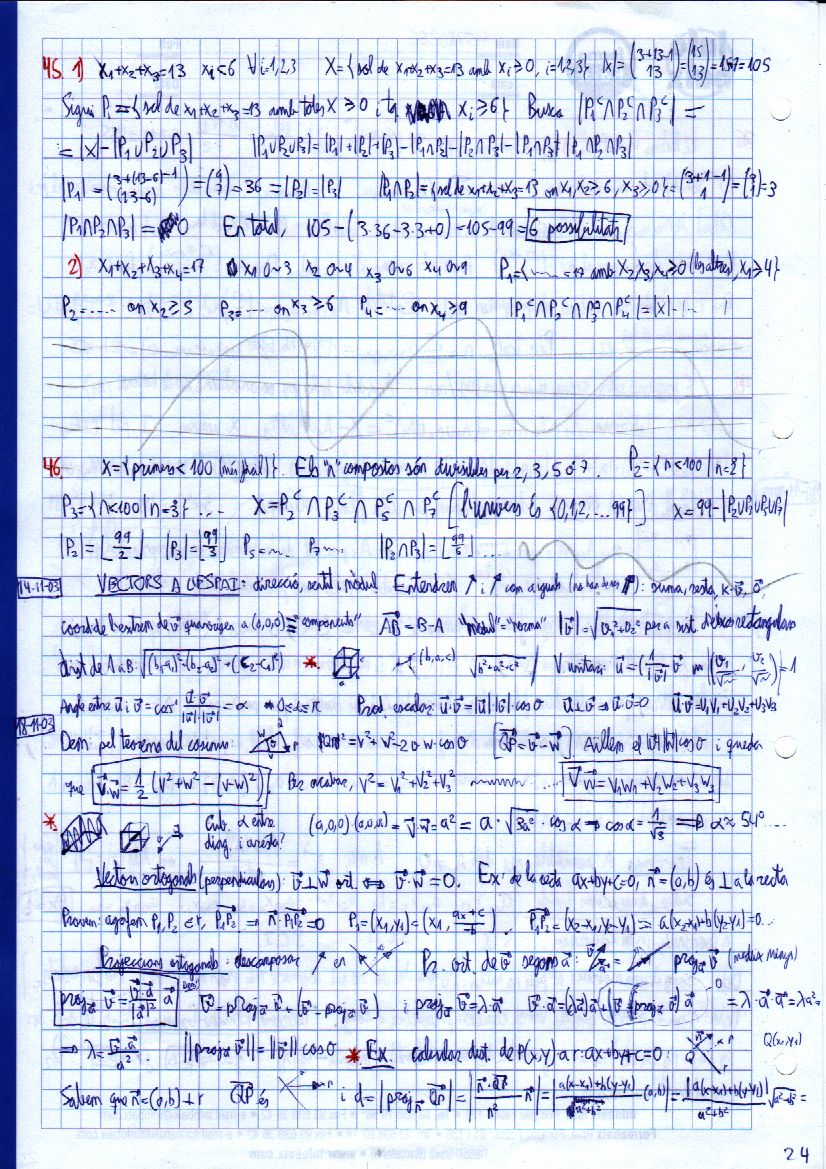 45. 1) x₁+x₂+x₃=13 xᵢ<6 ∀i=1,2,3 X={sol de x₁+x₂+x₃=13 amb xᵢ≥0, i=1,2,3} |X|=(3+13-1 13)=(15 13)=15·7=105
Sigui Pᵢ={sol de x₁+x₂+x₃=13 amb totes X≥0 i tq xᵢ≥6} Busco |P₁ᶜ∩P₂ᶜ∩P₃ᶜ| =
= |X|-|P₁∪P₂∪P₃| |P₁∪P₂∪P₃|=|P₁|+|P₂|+|P₃|-|P₁∩P₂|-|P₂∩P₃|-|P₁∩P₃|+|P₁∩P₂∩P₃|
|P₁|=(3+(13-6)-1 (13-6))=(9 7)=36=|P₂|=|P₃| |P₁∩P₂|={sol de x₁+x₂+x₃=13 on x₁,x₂≥6, x₃≥0}=(3+1-1 1)=(3 1)=3
|P₁∩P₂∩P₃|=0 En total, 105-(3·36-3·3+0)=105-99=6 possibilitats
2) x₁+x₂+x₃+x₄=17 x₁ 0~3 x₂ 0~4 x₃ 0~6 x₄ 0~9 P₁={...=17 amb x₂,x₃,x₄≥0 (les altres), x₁≥4}
P₂=.... on x₂≥5 P₃=.... on x₃≥6 P₄=.... on x₄≥9 |P₁ᶜ∩P₂ᶜ∩P₃ᶜ∩P₄ᶜ|=|X|-...
46. X={primers<100 (més final)}. Els "n" compostos són divisibles per 2, 3, 5 o 7. P₂={n<100 | n=2̇}
P₃={n<100 | n=3̇} .... X=P₂ᶜ∩P₃ᶜ∩P₅ᶜ∩P₇ᶜ [l'univers és {0,1,2,...99}] X=99-|P₂∪P₃∪P₅∪P₇|
|P₂|=⌊99/2⌋ |P₃|=⌊99/3⌋ P₅=... P₇... |P₂∩P₃|=⌊99/6⌋...
14-11-03 VECTORS A L'ESPAI: direcció, sentit i mòdul. Entendrem ↗ i ↗ com a iguals: suma, resta, k·v⃗, 0⃗,
coord de l'extrem de v⃗ quan origen a (0,0,0) ≡ "components" AB⃗=B-A "mòdul"="norma" |v⃗|=√(v₁²+v₂²) per a sist. d'eixos rectangulars
dist de A a B: √((b₁-a₁)²+(b₂-a₂)²+(c₂-c₁)²) *. (b,a,c) √(b²+a²+c²) / V. unitari: u⃗=(1/|v⃗|)v⃗
Angle entre u⃗ i v⃗=cos⁻¹ u⃗·v⃗/(|u⃗|·|v⃗|)=α * 0≤α≤π Prod. escalar: u⃗·v⃗=|u⃗||v⃗|cosα u⃗⊥v⃗⇒u⃗·v⃗=0 u⃗·v⃗=u₁v₁+u₂v₂+u₃v₃
18-11-03 Dem: pel teorema del cosinus: |QP|²=v²+w²-2v·w·cosα [QP⃗=v⃗-w⃗] Aïllem el |v⃗||w⃗|cosα i queda
que v⃗·w⃗=½(v²+w²-(v-w)²). Per acabar, v²=v₁²+v₂²+v₃² .... v⃗·w⃗=v₁w₁+v₂w₂+v₃w₃
*. Cub. α entre diag. i aresta? (a,0,0)·(a,a,a)=v⃗·w⃗=a²=a·√(3a²)·cosα⇒cosα=1/√3⇒α≈54°...
Vectors ortogonals (perpendiculars): v⃗⊥w⃗ ort. ⇔ v⃗·w⃗=0. Ex: de la recta ax+by+c=0, n⃗=(a,b) és ⊥ a la recta
Provem: agafem P₁,P₂∈r, P₁P₂⃗ ⇒ n⃗·P₁P₂⃗=0 P₁=(x₁,y₁)=(x₁, (ax+c)/-b). P₁P₂⃗=(x₂-x₁,y₂-y₁)⇒a(x₂-x₁)+b(y₂-y₁)=0...
Projeccions ortogonals: descompondre ↗ en Pr. ort. de v⃗ segons a⃗: = proj v⃗
proj_a⃗ v⃗=(v⃗·a⃗/|a⃗|²)a⃗ v⃗=proj_a⃗ v⃗+(v⃗-proj_a⃗ v⃗) i proj_a⃗ v⃗=λ·a⃗ v⃗·a⃗=(λa⃗)a⃗+(v⃗-proj_a⃗ v⃗)a⃗ 0 =λ·a⃗·a⃗=λa²⇒
⇒λ=v⃗·a⃗/a². ||proj_a⃗ v⃗||=||v⃗||cosα * Ex. calcular dist. de P(x,y) a r: ax+by+c=0: n⃗ P Q r Q(x₁,y₁)
Sabem que n⃗=(a,b)⊥r QP⃗ és i d=|proj_n⃗ QP⃗|=|(n⃗·QP⃗/n²)n⃗|=|(a(x-x₁)+b(y-y₁))/(a²+b²)·(a,b)|=|a(x-x₁)+b(y-y₁)|/(a²+b²)·√(a²+b²)=
24